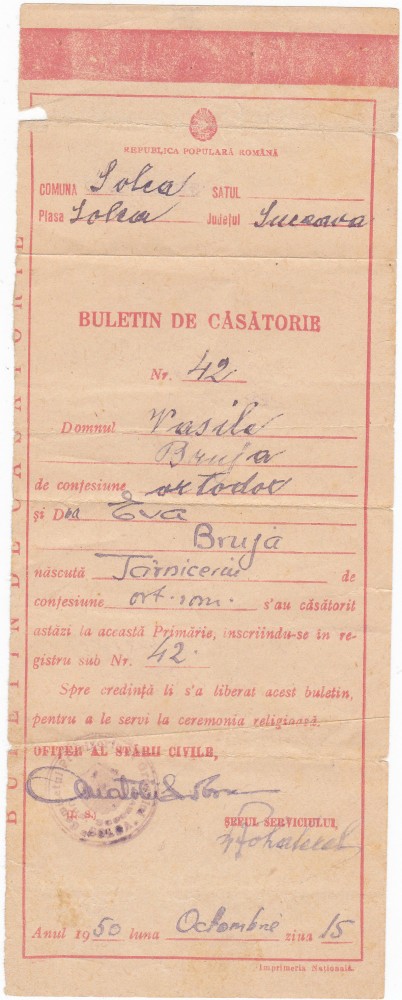 REPUBLICA POPULARĂ ROMÂNĂ
COMUNA Solca SATUL
Plasa Solca Județul Suceava
BULETIN DE CĂSĂTORIE
BULETIN DE CĂSĂTORIE
Nr. 42
Domnul Vasile
Bruja
de confesiune ortodox
și Dna Eva
Bruja
născută Tarniceriu de
confesiune ort. rom. s'au căsătorit
astăzi la această Primărie, înscriindu-se în re-
gistru sub Nr. 42.
Spre credință li s'a liberat acest buletin,
pentru a le servi la ceremonia religioasă.
OFIȚER AL STĂRII CIVILE,
(L. S.)
ȘEFUL SERVICIULUI,
Anul 1950 luna Octombrie ziua 15
Imprimeria Națională.